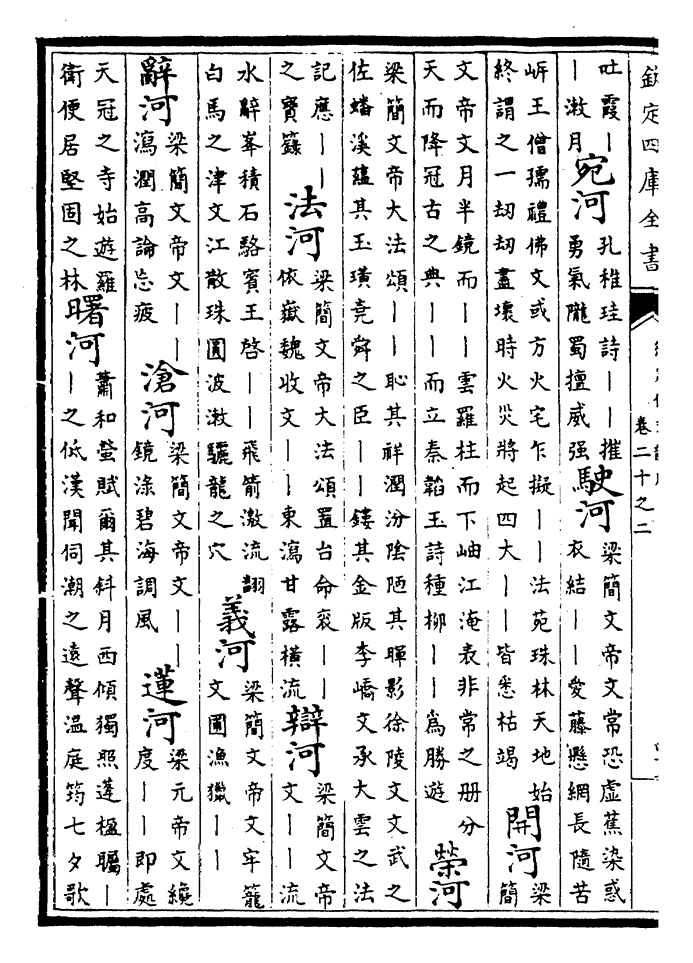 欽定四庫全書
卷二十之二
吐霞｜
｜漱月
宛河
孔稚珪詩｜｜摧
勇氣隴蜀擅威强
駛河
梁簡文帝文常恐虛蕉染惑
衣結｜｜愛藤懸網長隨苦
岍王僧孺禮佛文或方火宅乍擬｜｜法苑珠林天地始
終謂之一刼刼盡壞時火災將起四大｜｜皆悉枯竭
開河
梁
簡
文帝文月半鏡而｜｜雲羅柱而下岫江淹表非常之册分
天而降冠古之典｜｜｜而立秦韜玉詩種柳｜｜為勝遊
榮河
梁簡文帝大法頌｜｜｜恥其祥潤汾陰陋其暉影徐陵文文武之
佐蟠溪蘊其玉璜堯舜之臣｜｜鏤其金版李嶠文承大雲之法
記應｜｜｜
之寳籙
法河
梁簡文帝大法頌置台命衮｜｜
依嶽魏收文｜｜東瀉甘露横流
辯河
梁簡文帝
文｜｜流
水辭峯積石駱賓王啓｜｜飛箭激流翻
白馬之津文江散珠圓波漱驪龍之穴
義河
梁簡文帝文牢籠
文圃漁獵｜｜
辭河
梁簡文帝文｜｜
瀉潤高論忘疲
滄河
梁簡文帝文｜｜
鏡淥碧海調風
蓮河
梁元帝文纔
度｜｜即處
天冠之寺始遊羅
衛便居堅固之林
曙河
蕭和螢賦爾其斜月西傾獨照蓬楹矚｜
｜之低漢聞伺潮之遠聲温庭筠七夕歌